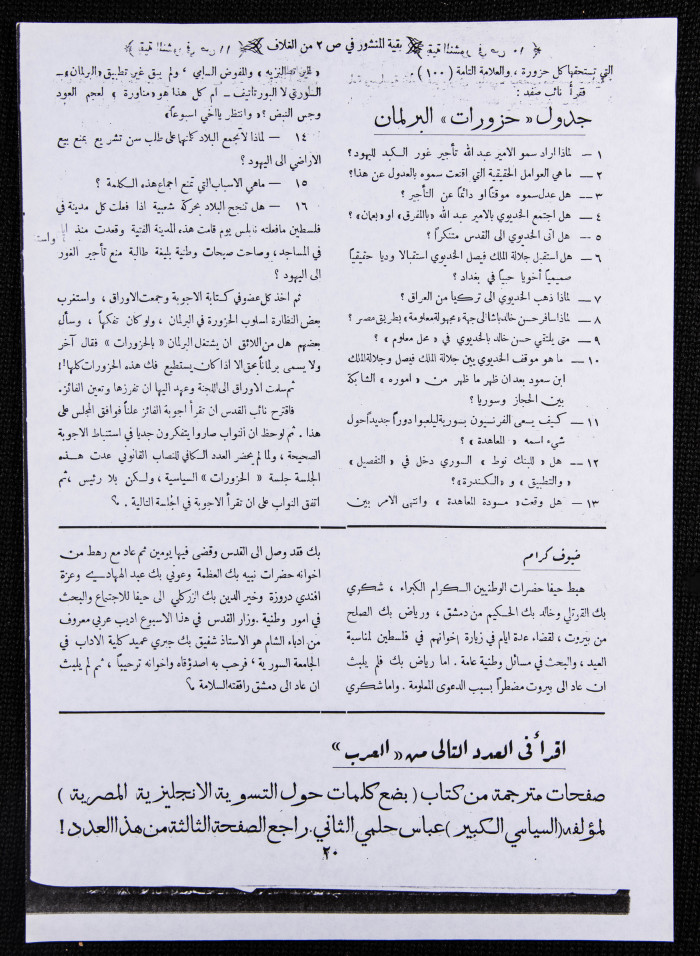 بقية المنشور في ص ٢ من الغلاف
التي تستحقها كل حزورة ، والعلامة التامة (١٠٠) .
فقرأ نائب صفد :
جدول « حزورات » البرلمان
١ — لماذا اراد سمو الامير عبد الله تأجير غور الكبد لليهود ؟
٢ — ما هي العوامل الحقيقية التي اقنعت سموه بالعدول عن هذا ؟
٣ — هل عدل سموه موقتاً او دائماً عن التأجير ؟
٤ — هل اجتمع الخديوي بالامير عبد الله « بالمفرق » او « بعمان » ؟
٥ — هل اتى الخديوي الى القدس متنكراً ؟
٦ — هل استقبل جلالة الملك فيصل الخديوي استقبالا وديا حقيقياً
صميمياً أخويا حبياً في بغداد ؟
٧ — لماذا ذهب الخديوي الى تركيا من العراق ؟
٨ — لماذا سافر حسن خالد باشا الى جهة « مجهولة معلومة » بطريق مصر ؟
٩ — متى يلتقي حسن خالد بالخديوي في « محل معلوم » ؟
١٠ — ما هو موقف الخديوي بين جلالة الملك فيصل وجلالة الملك
ابن سعود بعد ان ظهر ما ظهر من « اموره » الشابكة
بين الحجاز وسوريا ؟
١١ — كيف يسعى الفرنسيون بسورية ليلعبوا دوراً جديداً حول
شيء اسمه « المعاهدة » ؟
١٢ — هل « للبنك نوط » السوري دخل في « التفصيل »
« والتطبيق » و « الكندرة » ؟
١٣ — هل وقعت « مسودة المعاهدة » وانتهى الامر بين
« المسيو بونسو » والمفوض السامي ؟ ولم يبق غير تطبيق « البرلمان »
السوري لا البورتانيف – ام كل هذا هو « مناورة » لعجم العود
وجس النبض ؟ « وانتظر يا اخي اسبوعاً »
١٤ — لماذا لا تجمع البلاد كلها على طلب سن تشريع بمنع بيع
الاراضي الى اليهود ؟
١٥ — ما هي الاسباب التي تمنع اجماع هذه الكلمة ؟
١٦ — هل تنجح البلاد بحركة شعبية اذا فعلت كل مدينة في
فلسطين ما فعلته نابلس يوم قامت هذه المدينة الفتية وقعدت منذ
في المساجد ، وصاحت صيحات وطنية بليغة طالبة منع تأجر الغور
الى اليهود ؟
ثم اخذ كل عضو في كتابة الاجوبة وجمعت الاوراق ، واستغرب
بعض النظارة اسلوب الحزورة في البرلمان ، ولو كان تفكهاً ، وسأل
بعضهم هل من اللائق ان يشتغل البرلمان « بالحزورات » فقال آخر
ولا يسمى برلماناً بحق الا اذا كان يستطيع فك هذه الحزورات كلها !!
ثم سلمت الاوراق الى اللجنة وعهد اليها ان تفرزها وتعين الفائز.
فاقترح نائب القدس ان تقرأ اجوبة الفائز علناً فوافق المجلس على
هذا . ثم لوحظ ان النواب صاروا يتفكرون جديا في استنباط الاجوبة
الصحيحة ، ولما لم يحضر العدد الكافي للنصاب القانوني عدت هذه
الجلسة جلسة « الحزورات » السياسية ، ولكن بلا رئيس ، ثم
اتفق النواب على ان تقرأ الاجوبة في الجلسة التالية . ؟
ضيوف كرام
هبط حيفا حضرات الوطنيين الكرام الكبراء ، شكري
بك القوتلي وخالد بك الحكيم من دمشق ، ورياض بك الصلح
من بيروت ، لقضاء عدة ايام في زيارة اخوانهم في فلسطين لمناسبة
العيد ، والبحث في مسائل وطنية عامة . اما رياض بك فلم يلبث
ان عاد الى بيروت مضطراً بسبب الدعوى المعلومة . واما شكري
بك فقد وصل الى القدس وقضى فيها يومين ثم عاد مع رهط من
اخوانه حضرات نبيه بك العظمة وعوني بك عبد الهادي وعزة
افندي دروزة وخير الدين بك الزركلي الى حيفا للاجتماع والبحث
في امور وطنية . وزار القدس في هذا الاسبوع اديب عربي معروف
من ادباء الشام هو الاستاذ شفيق بك جبري عميد كلية الاداب في
الجامعة السورية ، فرحب به اصدقاؤه واخوانه ترحيباً ، ثم لم يلبث
ان عاد الى دمشق رافقته السلامة ؟
اقرأ في العدد التالي من « العرب »
صفحات مترجمة من كتاب ( بضع كلمات حول التسوية الانجليزية المصرية )
لمؤلفه ( السياسي الكبير ) عباس حلمي الثاني . راجع الصفحة الثالثة من هذا العدد !
٢٠